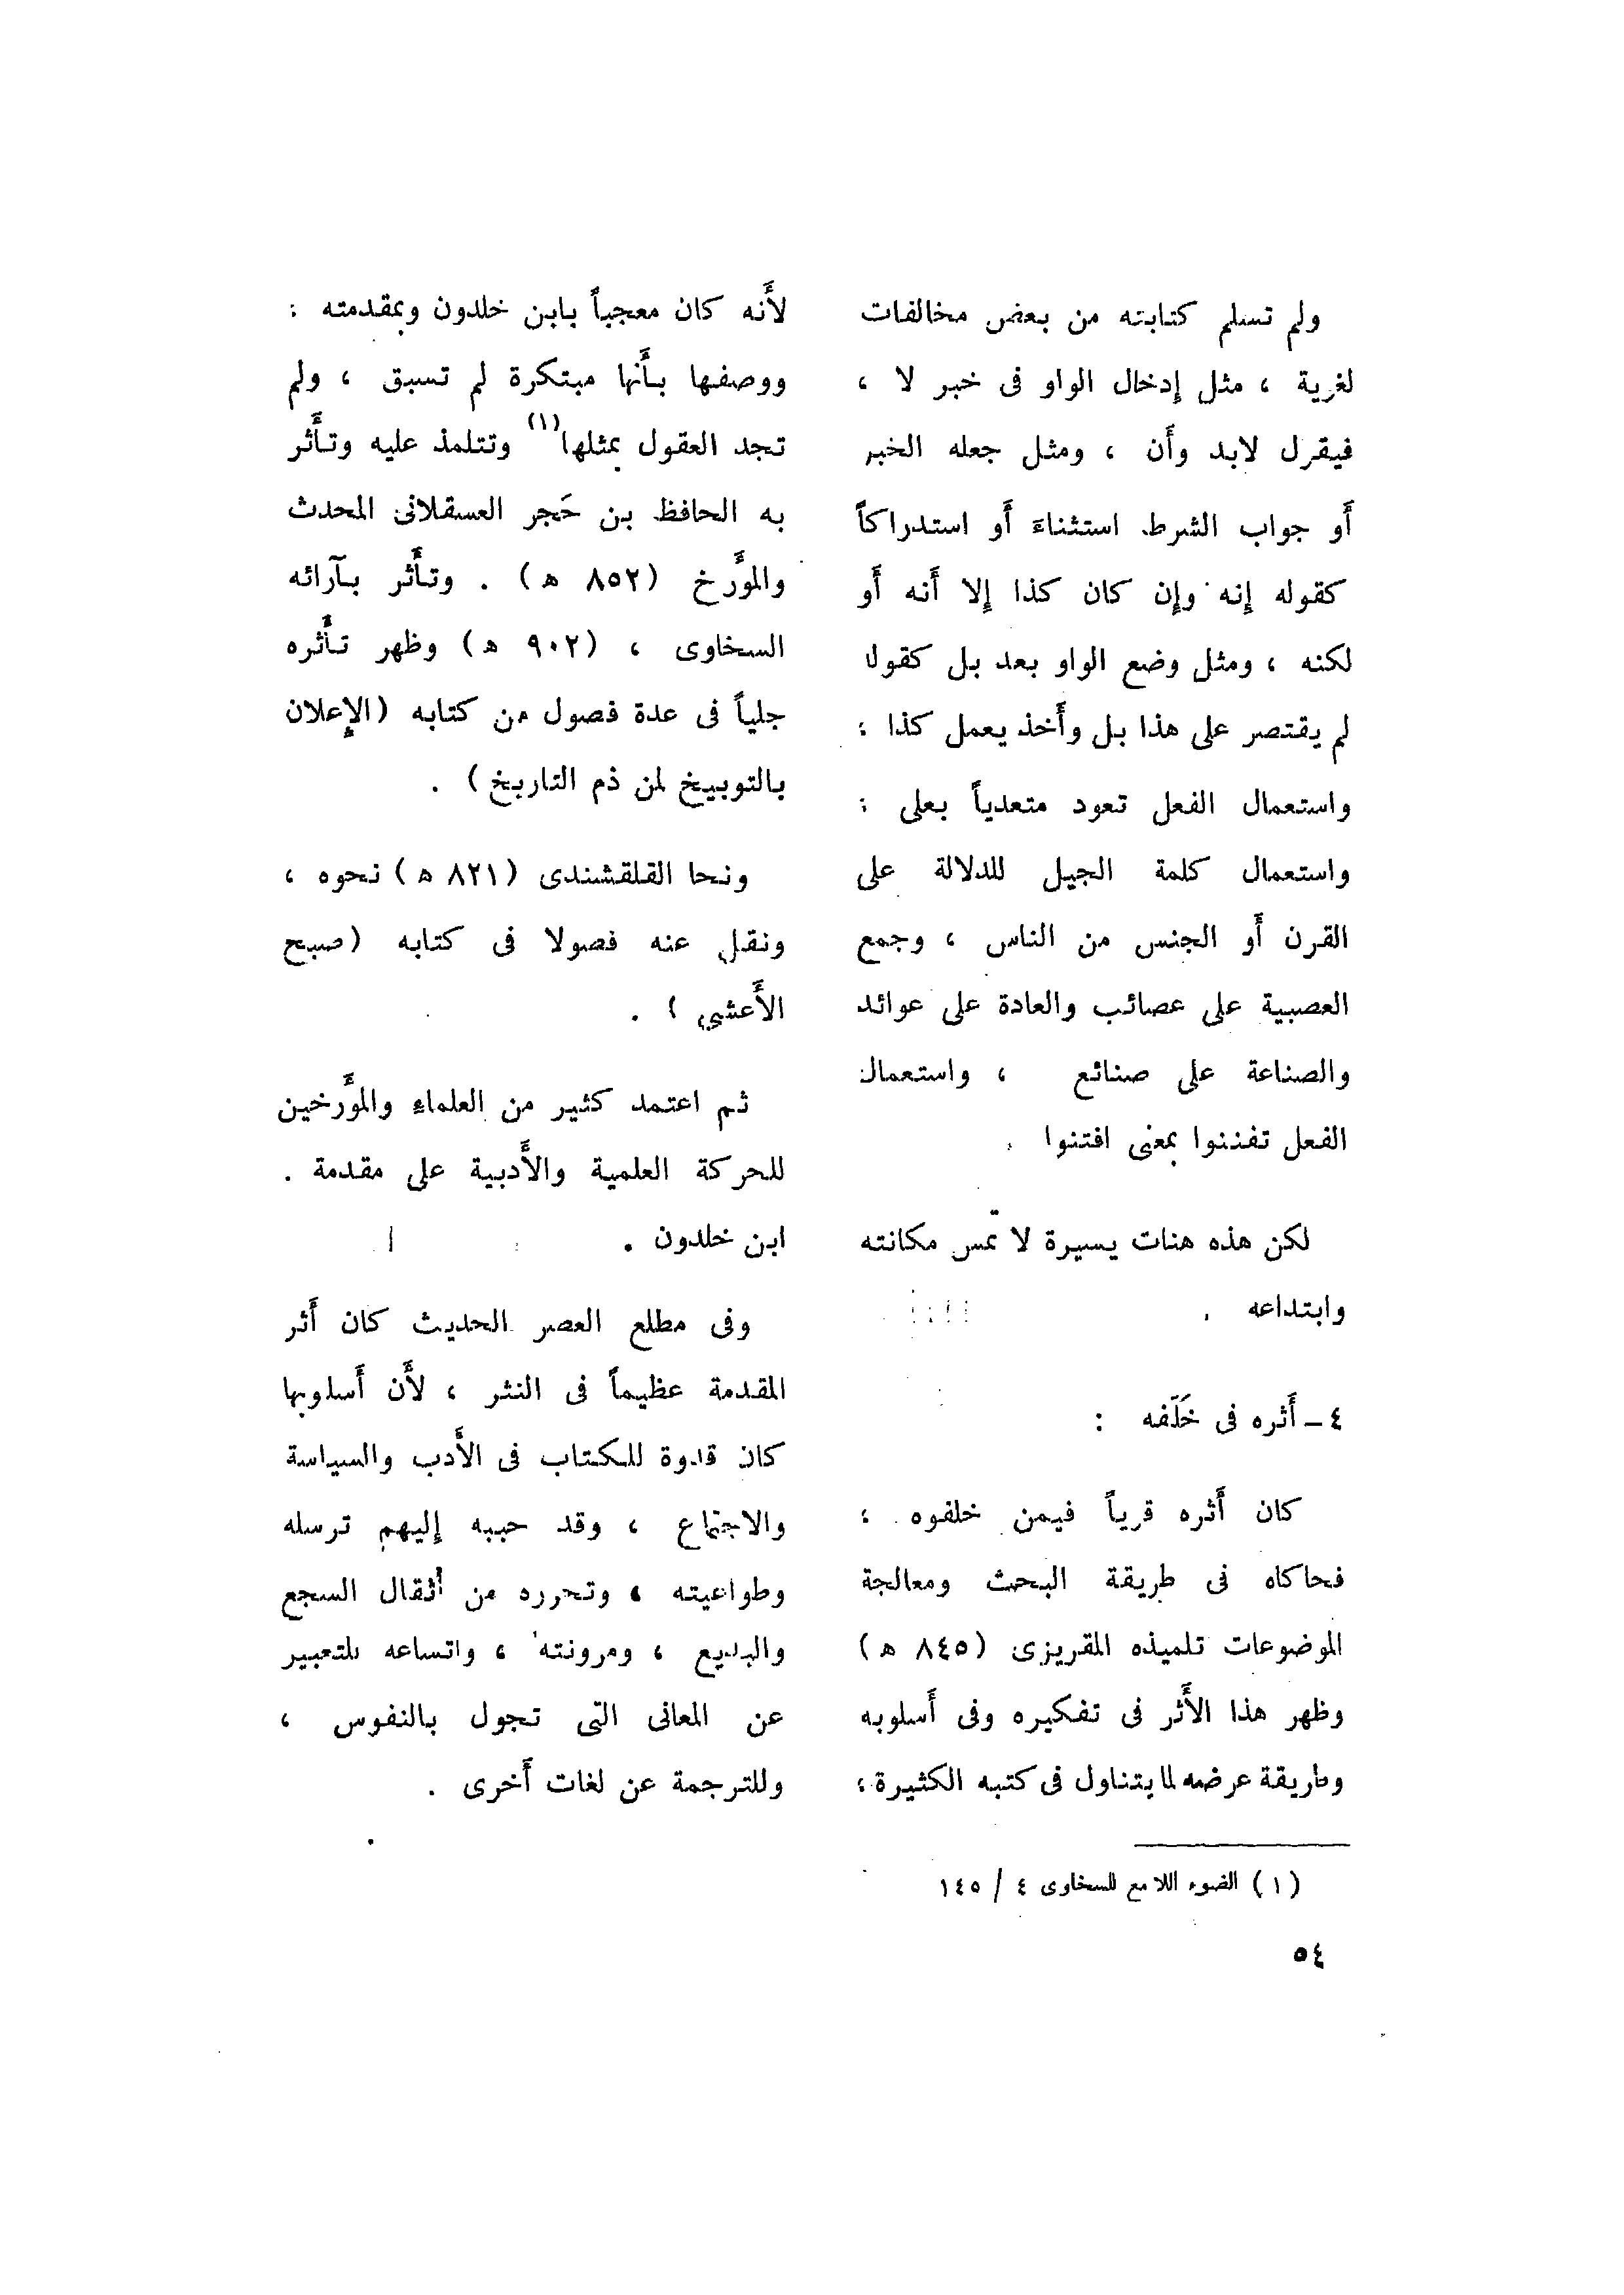 ولم تسلم كتابته من بعض مخالفات
لغوية ، مثل إدخال الواو فى خبر لا ،
فيقول لابد وأَن ، ومثل جعله الخبر
أَو جواب الشرط استثناءَ أَو استدراكاً
كقوله إنه وإن كان كذا إلا أَنه أَو
لكنه ، ومثل وضع الواو بعد بل كقوله
لم يقتصر على هذا بل وأَخذ يعمل كذا ؛
واستعمال الفعل تعود متعدياً بعلى ؛
واستعمال كلمة الجيل للدلالة على
القرن أَو الجنس من الناس ، وجمع
العصبية على عصائب والعادة على عوائد
والصناعة على صنائع ، واستعمال
الفعل تفننوا بمعنى افتنوا .
لكن هذه هنات يسيرة لا تمّس مكانته
وابتداعه .
٤ ــ أَثره فى خَلَفه :
كان أَثره قوياً فيمن خلفوه ؛
فحاكاه فى طريقة البحث ومعالجة
الموضوعات تلميذه المقريزى (٨٤٥ ه)
وظهر هذا الأَثر فى تفكيره وفى أَسلوبه
وطريقة عرضه لما يتناول فى كتبه الكثيرة ؛
لأَنه كان معجباً بابن خلدون وبمقدمته ؛
ووصفها بأَنها مبتكرة لم تسبق ، ولم
تجد العقول بمثلها(١) وتتلمذ عليه وتأَثر
به الحافظ بن حَجر العسقلانى المحدث
والمؤَرخ (٨٥٢ ه) . وتأَثر بآرائه
السخاوى ، (٩٠٢ ه) وظهر تأَثره
جلياً فى عدة فصول من كتابه (الإعلان
بالتوبيخ لمن ذم التاريخ) .
ونحا القلقشندى (٨٢١ ه) نحوه ،
ونقل عنه فصولا فى كتابه (صبح
الأَعشى ) .
ثم اعتمد كثير من العلماءِ والمؤَرخين
للحركة العلمية والأَدبية على مقدمة .
ابن خلدون .
وفى مطلع العصر الحديث كان أَثر
المقدمة عظيماً فى النثر ، لأَن أَسلوبها
كان قدوة للكتاب فى الأَدب والسياسة
والاجتماع ، وقد حببه إليهم ترسله
وطواعيته ، وتحرره من أثقال السجع
والبديع ، ومرونته ، واتساعه للتعبير
عن المعانى التى تجول بالنفوس ،
وللترجمة عن لغات أَخرى .
(١) الضوء اللامع للسخاوى ٤ / ١٤٥
٥٤